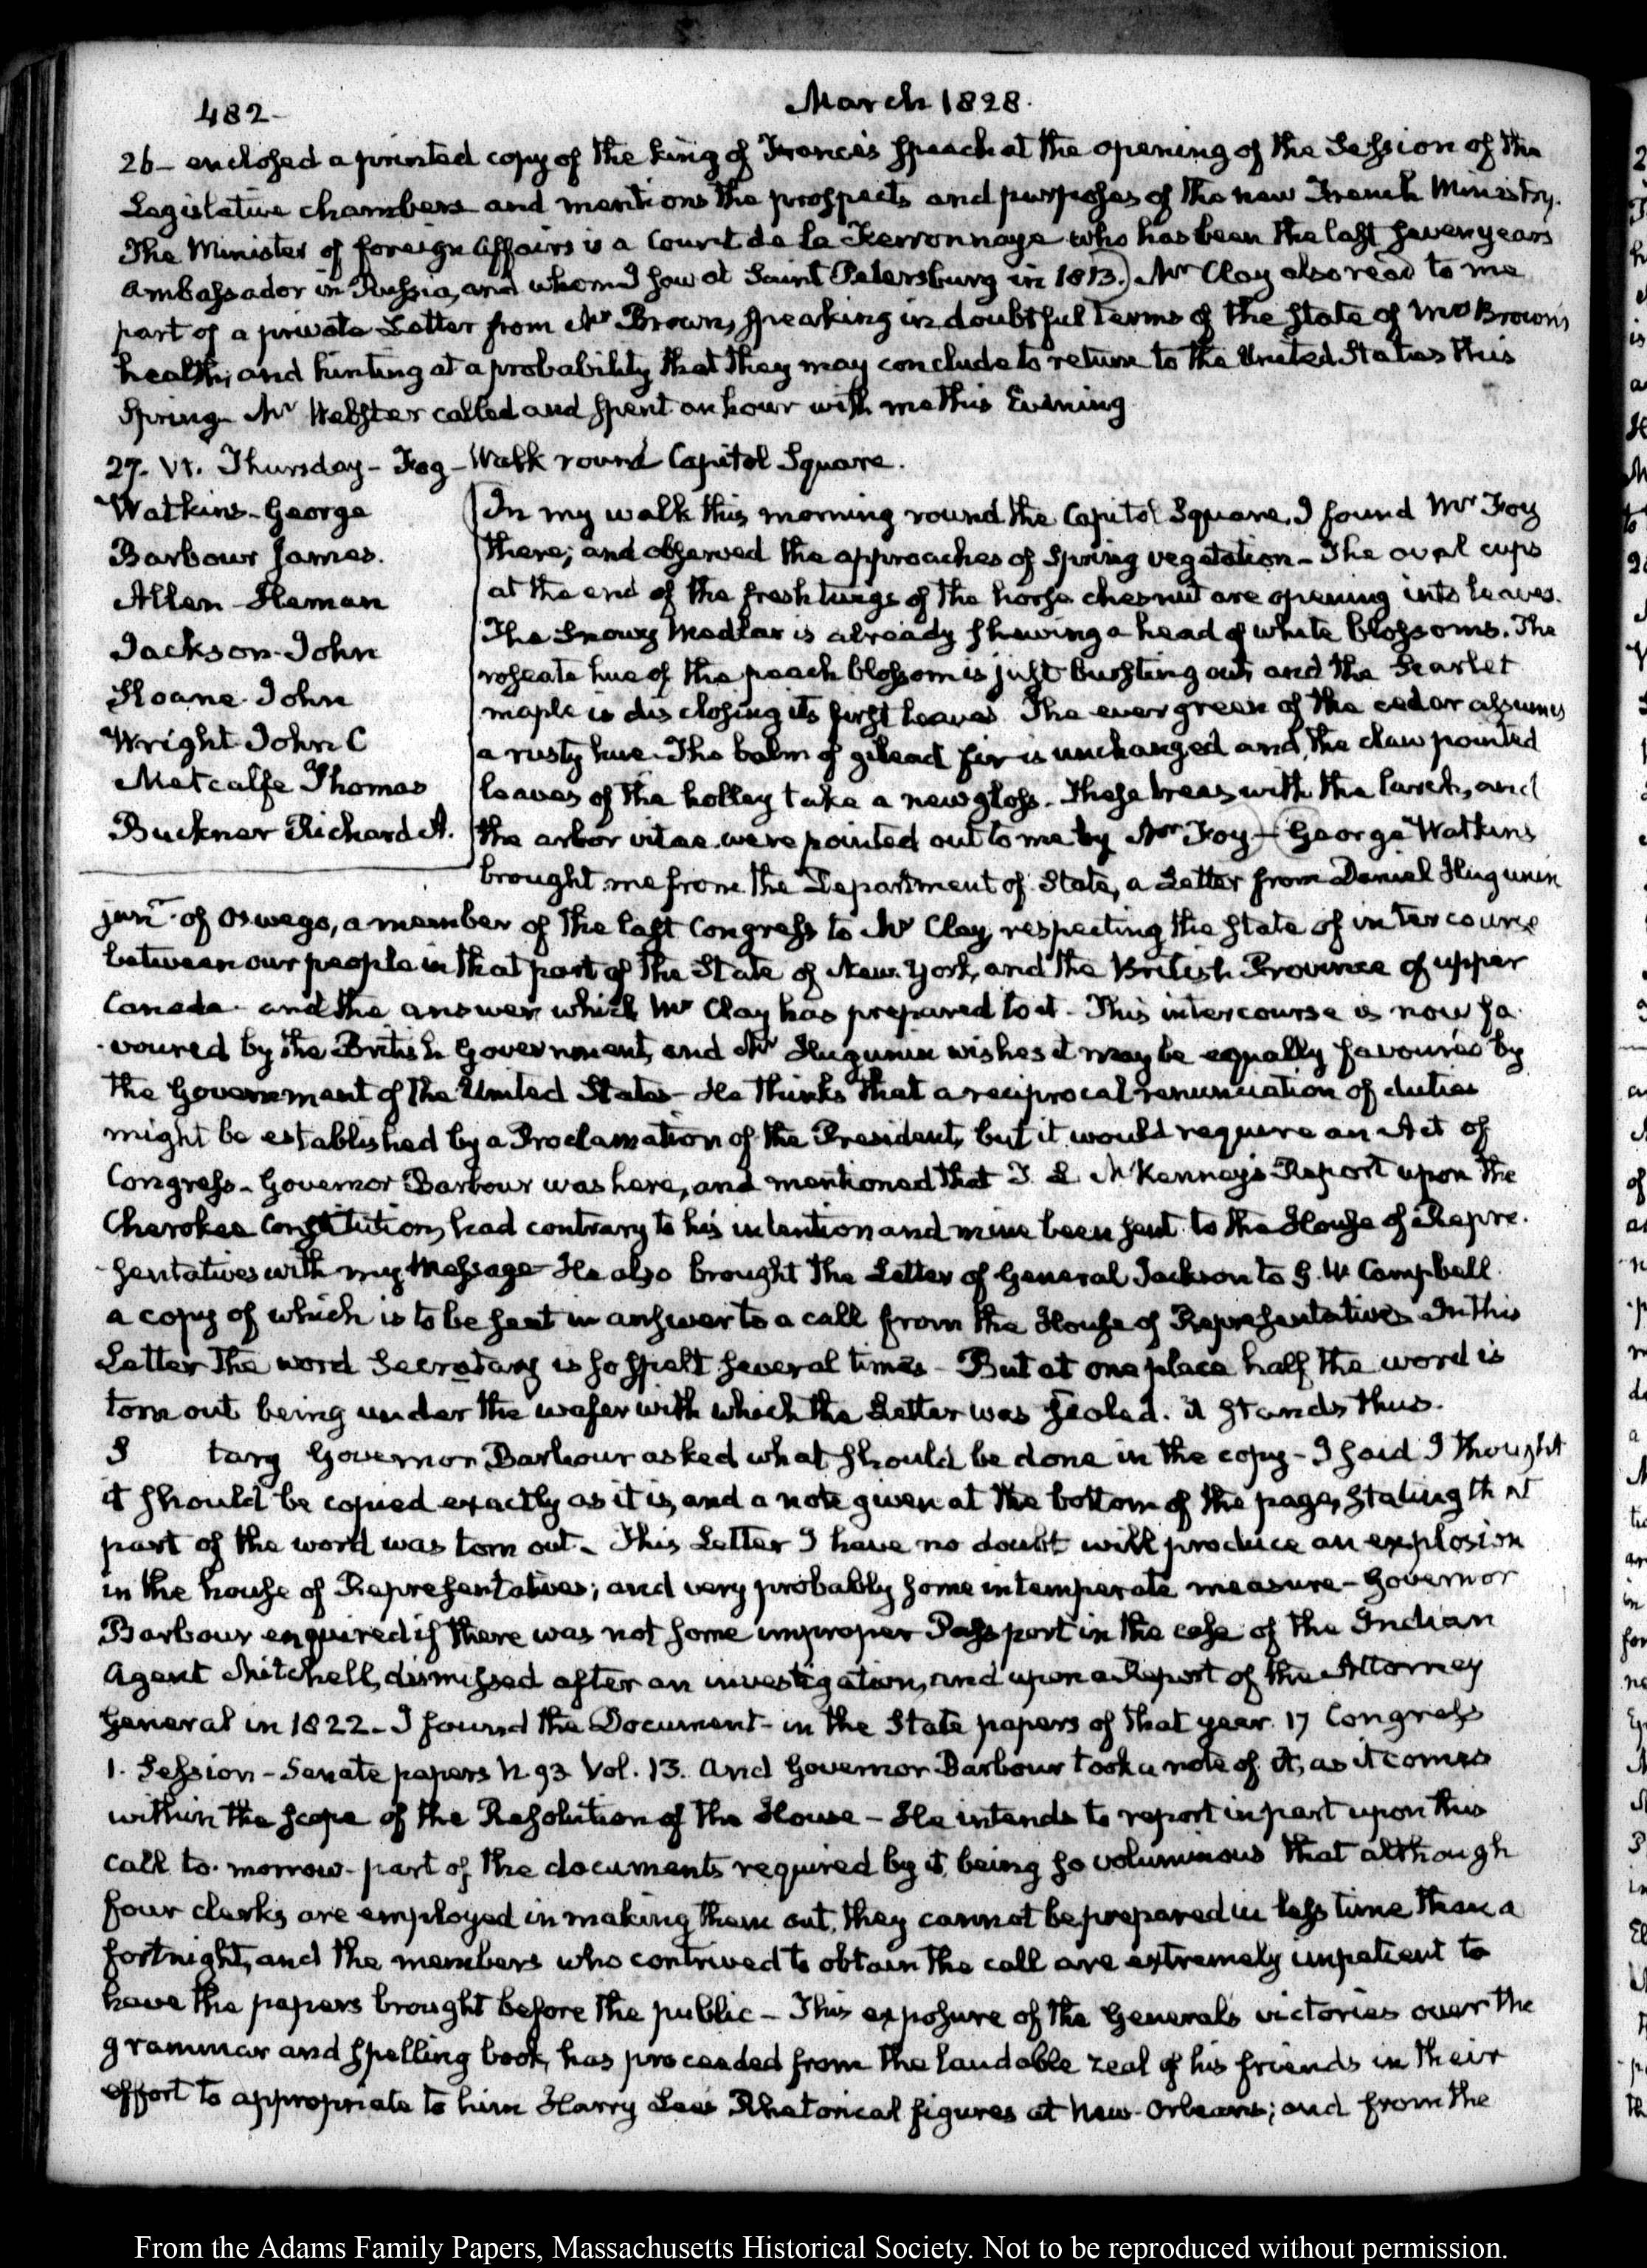 482-
March 1828.
26- enclosed a printed copy of the King of France's speech at the opening of the Session of the
Legislative chambers and mentions the prospects and purposes of the new French Ministry.
The Minister of foreign Affairs is a Count de la Ferronnaye who has been the last seven years
Ambassador in Russia, and whom I saw at Saint Petersburg in 1813.) Mr Clay also read to me
part of a private Letter from Mr Brown, speaking in doubtful terms of the state of Mrs Brown's
health; and hinting at a probability that they may conclude to return to the United States this
Spring- Mr Webster called and spent an hour with me this Evening
27. VI. Thursday- Fog- Walk round Capitol Square.
Watkins-George
Barbour James.
Allen-Heman
Jackson-John
Sloane-John
Wright-John C
Metcalfe Thomas
Buckner Richard A.
In my walk this morning round the Capitol Square, I found Mr Foy
there; and observed the approaches of Spring vegetation- The oval cups
at the end of the fresh twigs of the horse chesnut are opening into leaves.
The Snowy Medlar is already shewing a head of white blossoms. The
roseate hue of the peach blossom is just bursting out and the Scarlet
maple is disclosing its first leaves. The evergreen of the cedar assumes
a rusty hue- The balm of gilead fir is unchanged and the claw pointed
leaves of the holley take a new gloss. These trees with the larch, and
the arbor vitae were pointed out to me by Mr Foy- George Watkins
brought me from the Department of State, a Letter from Daniel Hugunin
junr. of Oswego, a member of the last Congress to Mr Clay, respecting the state of intercourse
between our people in that part of the State of New-York, and the British Province of upper
Canada- and the answer which Mr Clay has prepared to it- This intercourse is now fa-
-voured by the British Government, and Mr Hugunin wishes it may be equally favoured by
the Government of the United States- He thinks that a reciprocal renunciation of duties
might be established by a Proclamation of the President, but it would require an Act of
Congress- Governor Barbour was here, and mentioned that T. L. McKenney's Report upon the
Cherokee Constitution, had contrary to his intention and mine been sent to the House of Repre-
-sentatives with my Message- He also brought the Letter of General Jackson to G. W Campbell
a copy of which is to be sent in answer to a call from the House of Representatives In this
Letter the word Secratary is so spelt several times- But at one place half the word is
torn out being under the wafer with which the Letter was sealed. it stands thus.
S tary Governor Barbour asked what should be done in the copy- I said I thought
it should be copied exactly as it is, and a note given at the bottom of the page, stating that
part of the word was torn out- This Letter I have no doubt will produce an explosion
in the house of Representatives; and very probably some intemperate measure- Governor
Barbour enquired if there was not some improper Passport in the case of the Indian
Agent Mitchell, dismissed after an investigation, and upon a Report of the Attorney
General in 1822- I found the Document- in the State papers of that year. 17 Congress
1. Session- Senate papers N. 93 Vol. 13. And Governor Barbour took a note of it, as it comes
within the scope of the Resolution of the House- He intends to report in part upon this
call to-morrow- part of the documents required by it, being so voluminous that although
four clerks are employed in making them out, they cannot be prepared in less time than a
fortnight, and the members who contrived to obtain the call are extremely impatient to
have the papers brought before the public- This exposure of the Generals victories over the
grammar and spelling book, has proceeded from the laudable zeal of his friends in their
effort to appropriate to him Harry Lees Rhetorical figures at New-Orleans; and from the
From the Adams Family Papers, Massachusetts Historical Society. Not to be reproduced without permission.